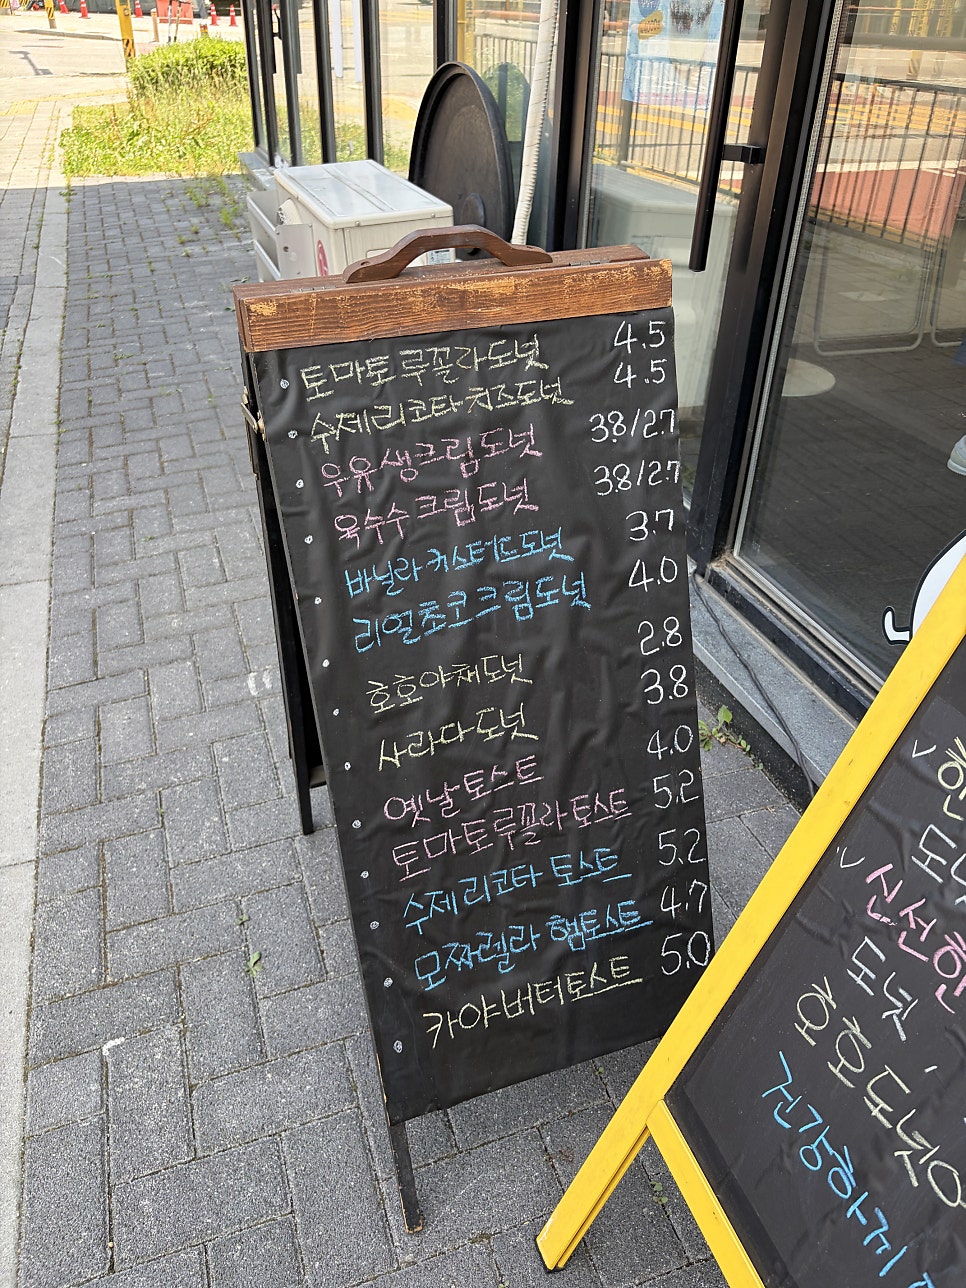 토마토루꼴라도넛 4.5
수제리코타치즈도넛 4.5
우유생크림도넛 3.8/2.7
옥수수크림도넛 3.8/2.7
바닐라커스터드도넛 3.7
리얼초코크림도넛 4.0
호호야채도넛 2.8
사라다도넛 3.8
옛날토스트 4.0
토마토루꼴라토스트 5.2
수제리코타 토스트 5.2
모짜렐라 햄토스트 4.7
카야버터토스트 5.0
신선한
도넛,
호호도넛
건강하게